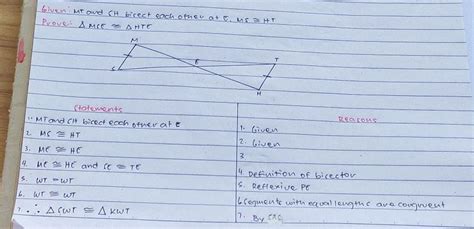 Given: MT and CH bisect each other at E. MS ≅ HT
Prove: △MCE ≅ △HTE
M
E
T
S
H
Statements
Reasons
1. MT and CH bisect each other at E
1. Given
2. MS ≅ HT
2. Given
3. ME ≅ HE
3
4. ME ≅ HE and CE ≅ TE
4. Definition of bisector
5. WT = WT
5. Reflexive PE
6. WT ≅ WT
6. Segments with equal lengths are congruent
7. ∴ △CWT ≅ △KWT
7. By SXS